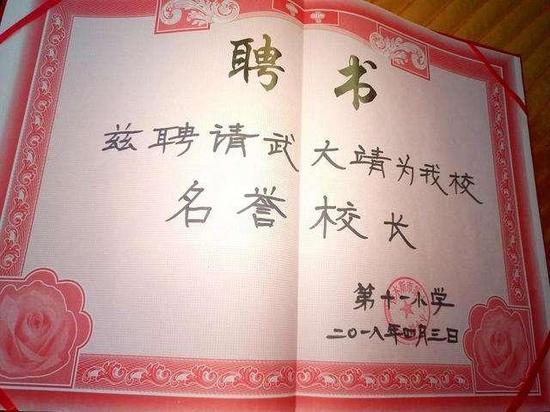 聘书
兹聘请武大靖为我校
名誉校长
第十一小学
二〇一八年四月三日